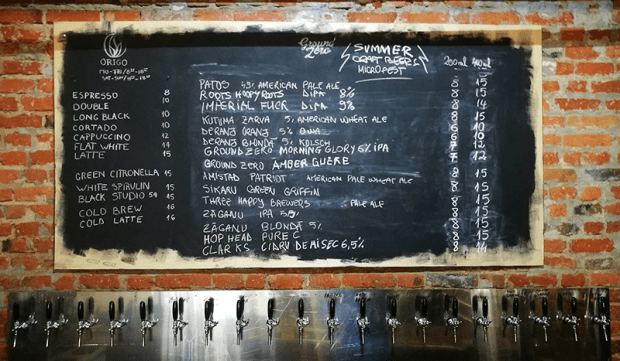 ORIGO
ESPRESSO 8
DOUBLE 10
LONG BLACK 10
CORTADO 10
CAPPUCCINO 12
FLAT WHITE 14
LATTE 15
GREEN CITRONELLA 15
WHITE SPIRULIN 15
BLACK STUDIO 54 15
COLD BREW 16
COLD LATTE 16
Ground Zero
SUMMER
CRAFT BEER
MICROFEST
400ml
PATOS 5,4% AMERICAN PALE ALE 8 15
ROOTS HOOPY ROOTS DIPA 8% 8 15
IMPERIAL FUCK DIPA 9% 8 14
KUTUMA ZARVA 5% AMERICAN WHEAT ALE 8 15
DERANJ ORANJ 5% 6 10
DERANJ BLONDĂ 5% KOLSCH 6 10
GROUND ZERO MORNING GLORY 6% IPA 7 12
GROUND ZERO AMBER GUERE 7 12
AMISTAD PATRIOT AMERICAN PALE WHEAT ALE 8 15
SIKARU GREEN GRIFFIN 8 15
THREE HAPPY BREWERS PALE ALE 8 15
ZĂGANU IPA 8 15
ZĂGANU BLONDĂ 5% 8 15
HOP HEAD PURE C 8 15
CLARKS CIDRU DEMISEC 6,5% 8 14